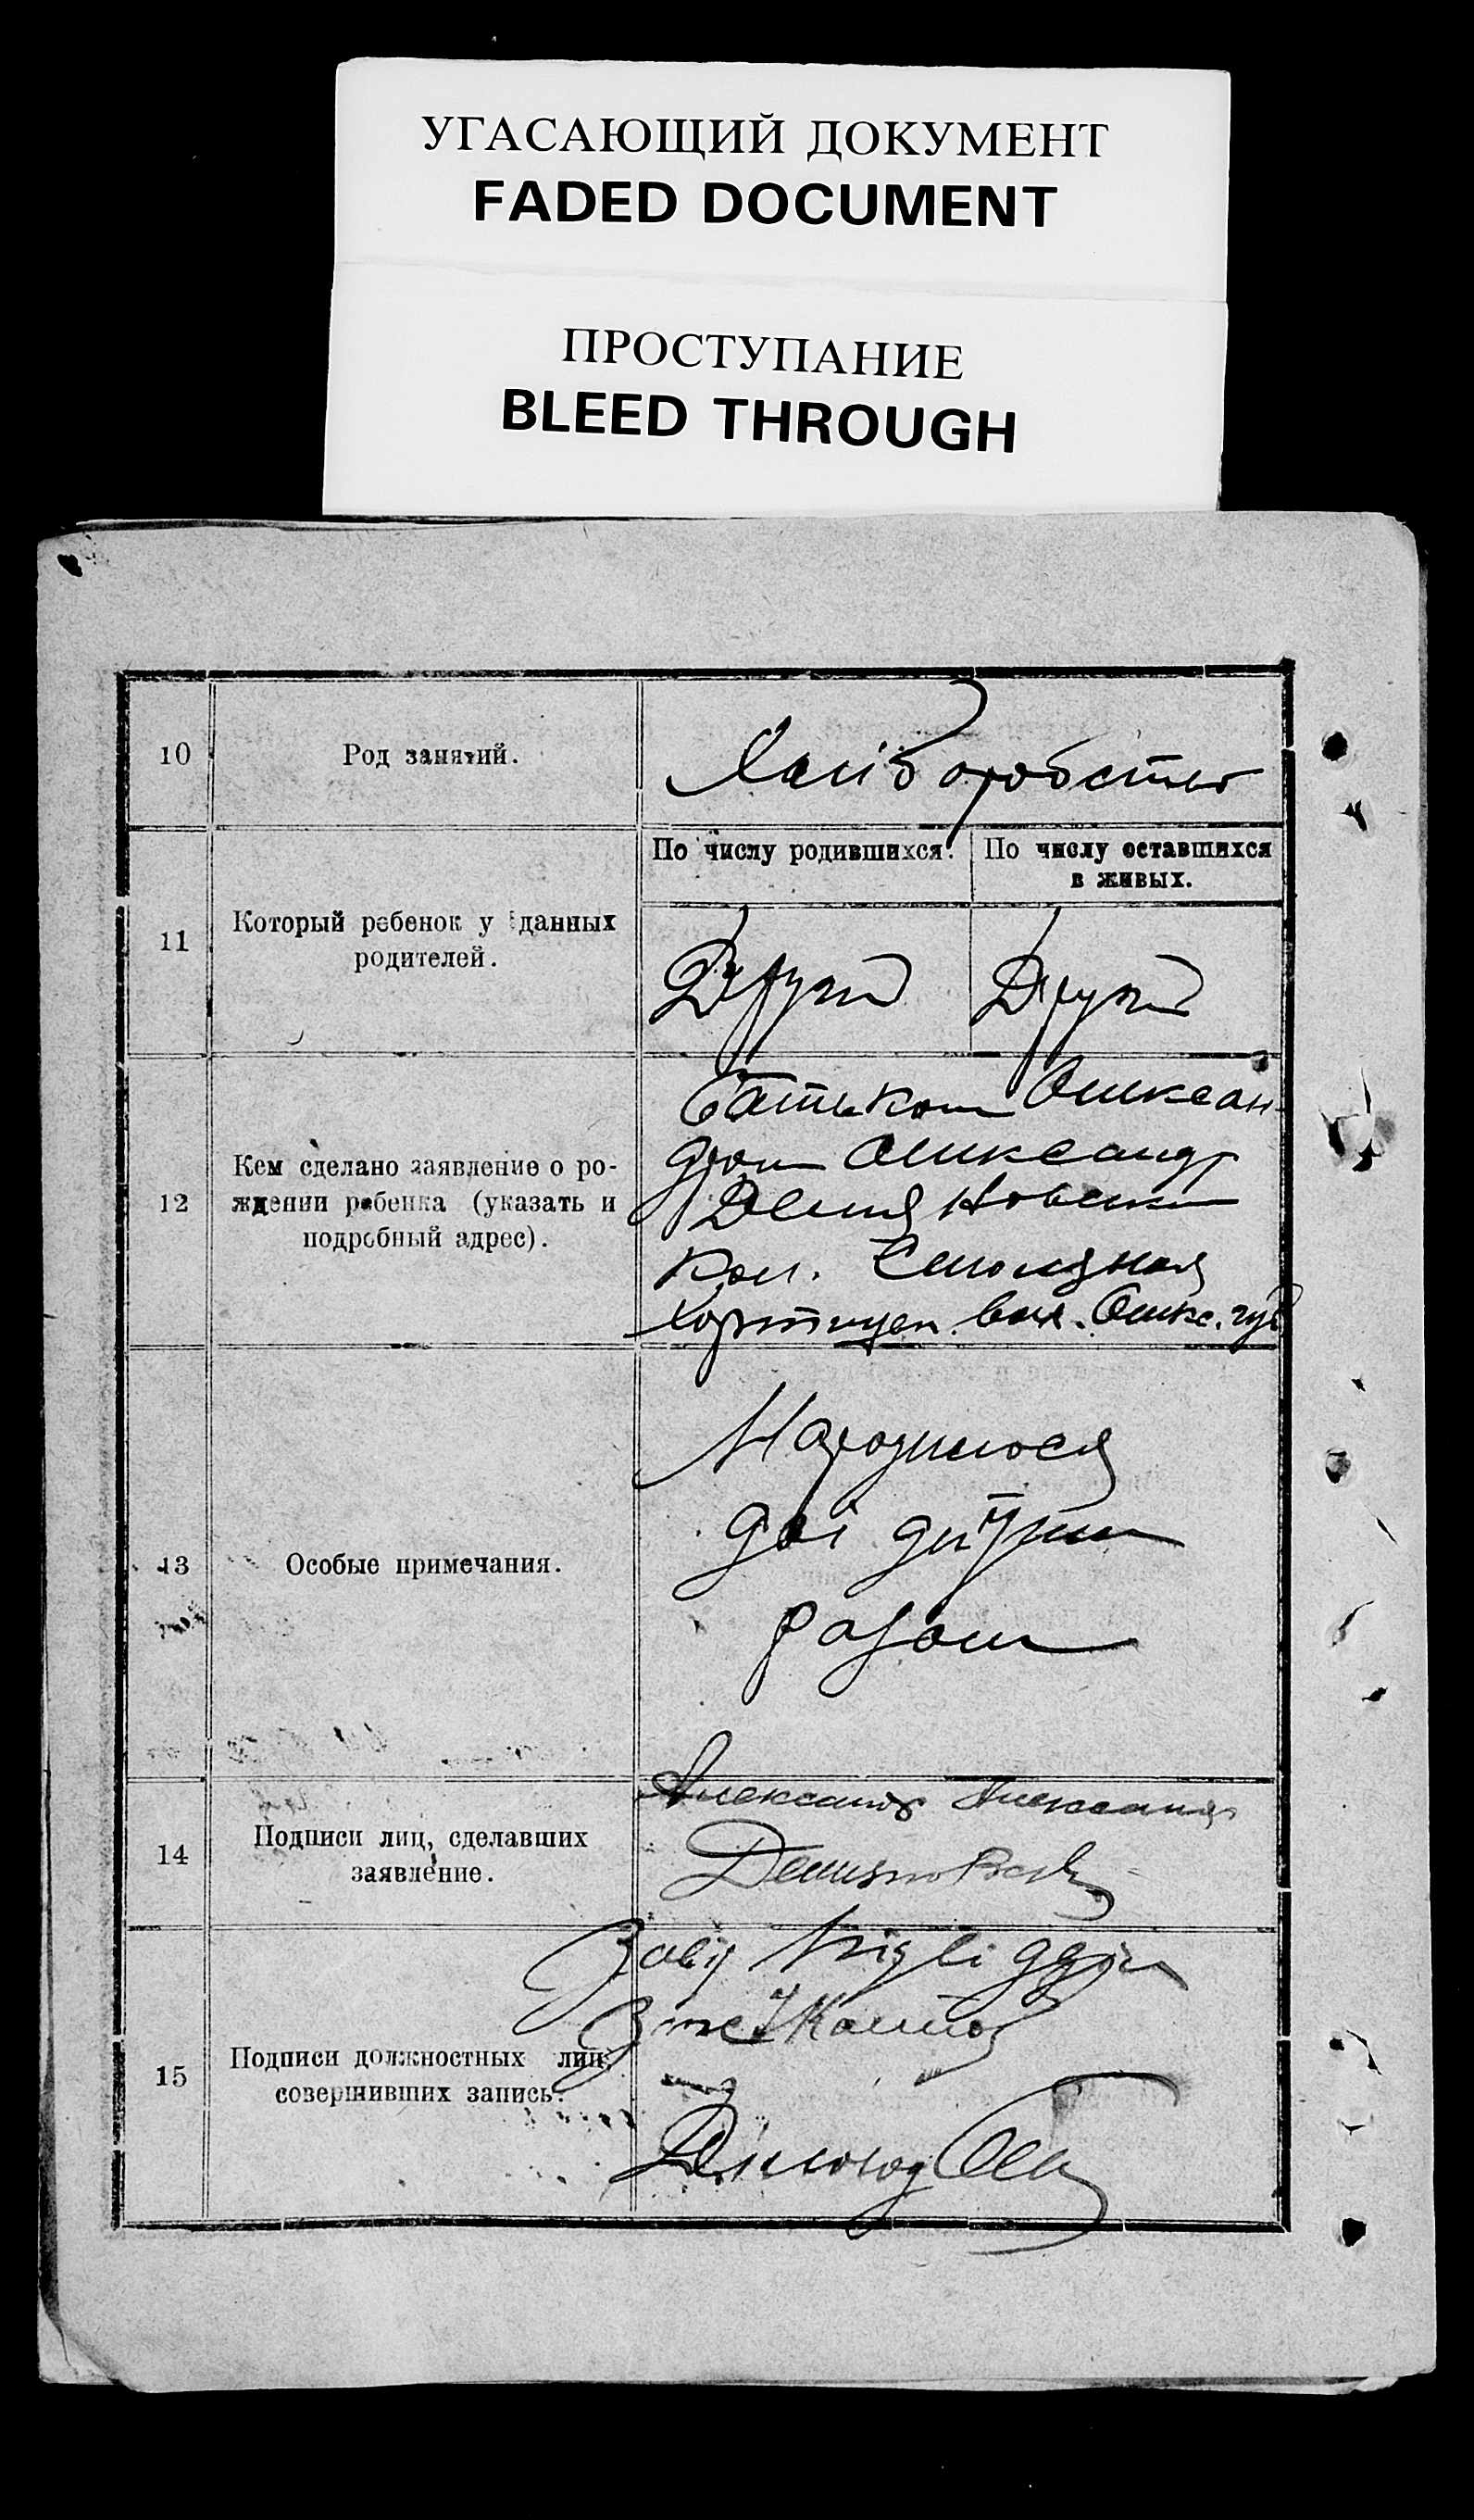 УГАСАЮЩИЙ ДОКУМЕНТ
FADED DOCUMENT
ПРОСТУПАНИЕ
BLEED THROUGH
10
Род занятий.
Хліборобство
11
Который ребенок у данных
родителей.
По числу родившихся.
По числу оставшихся
в живых.
Другий
Другий
12
Кем сделано заявление о ро-
ждении ребенка (указать и
подробный адрес).
Батьком Олексан-
дром Олександр
Демяновским
Кол.
Хортицьк. вол. Олекс. губ
13
Особые примечания.
Народилося
дві дитини
разом
14
Подписи лиц, сделавших
заявление.
Александр Александр
Демяновск
15
Подписи должностных лиц,
совершивших запись.
Завід